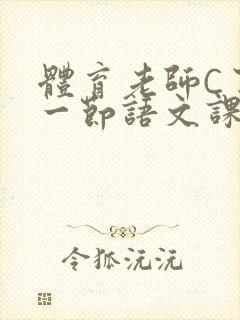 體育老師C
一節語文課
令狐沅沅